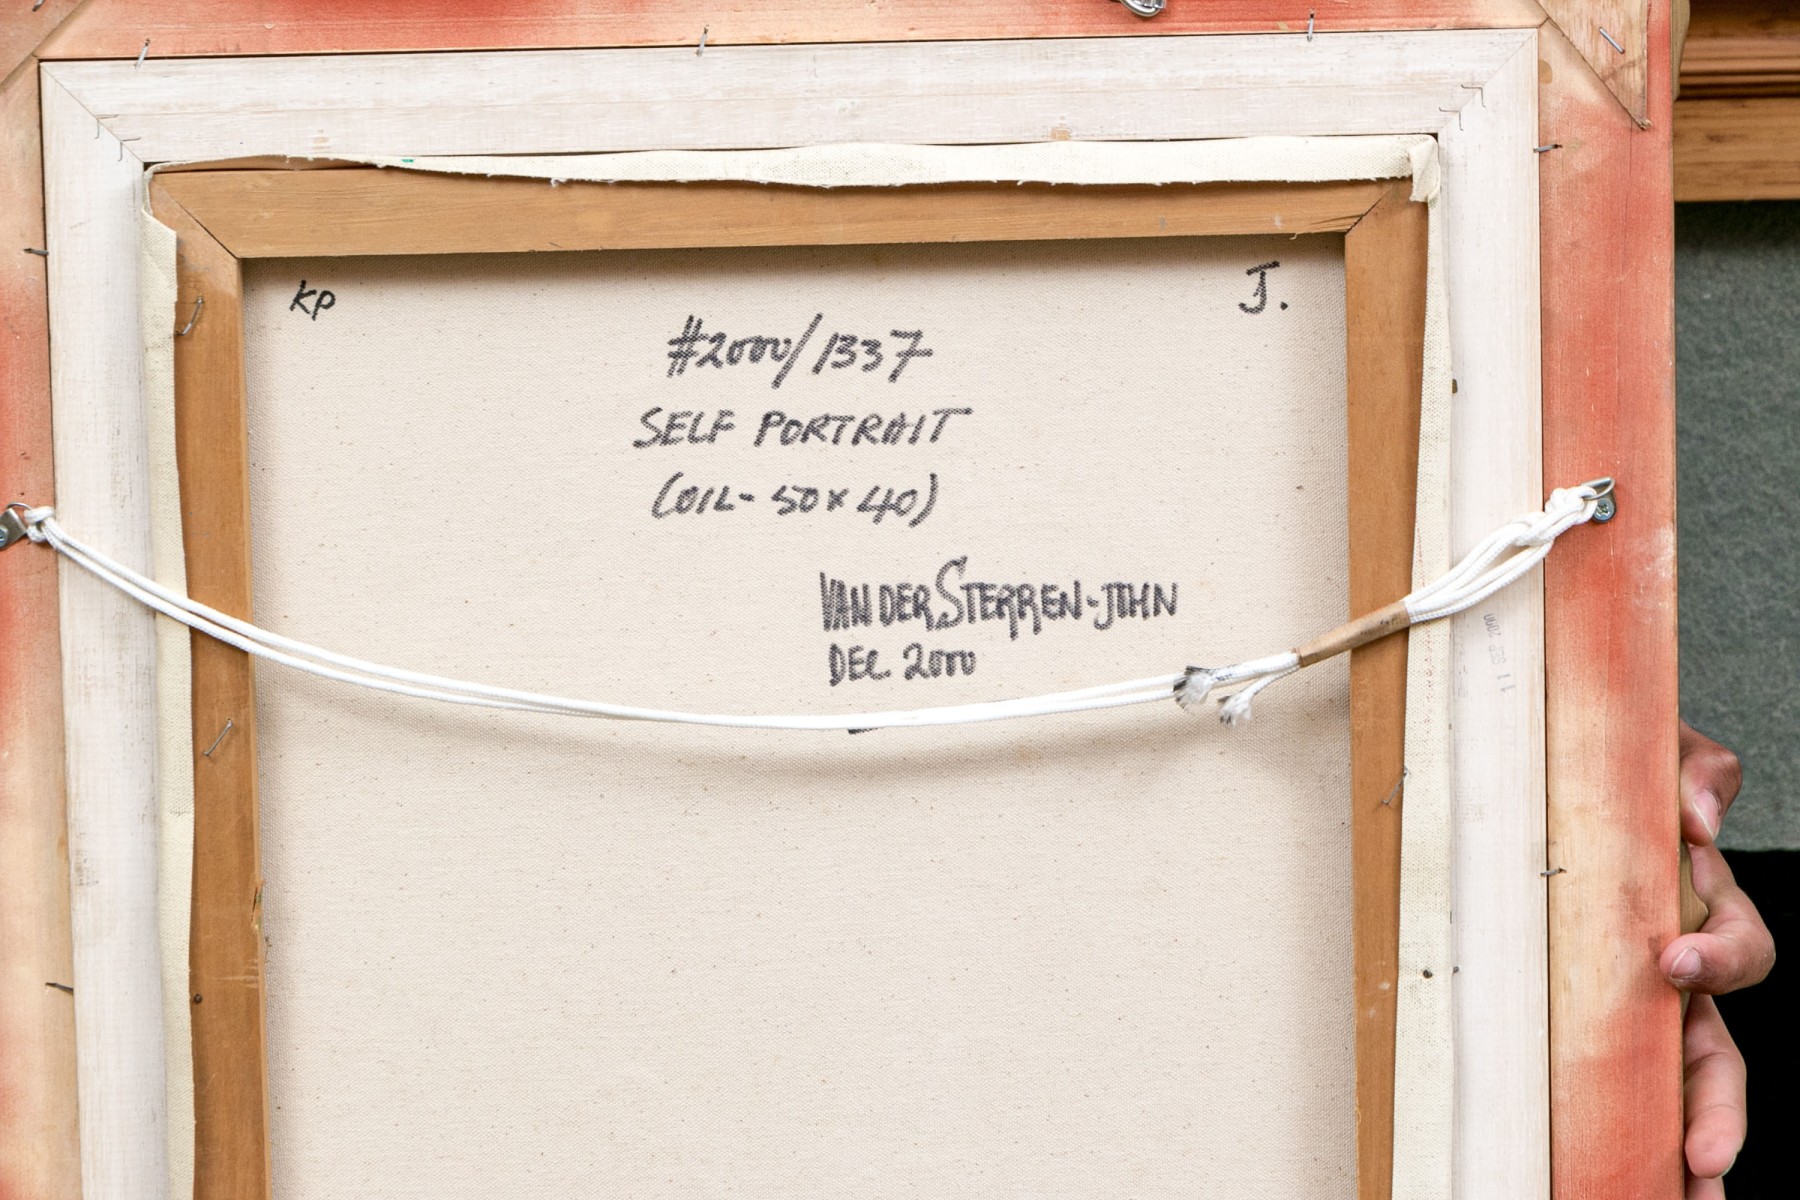 KP
J.
#2000/1337
SELF PORTRAIT
(OIL- 50x40)
VAN DER STERREN-JOHN
DEC 2000
11 SEP 2000